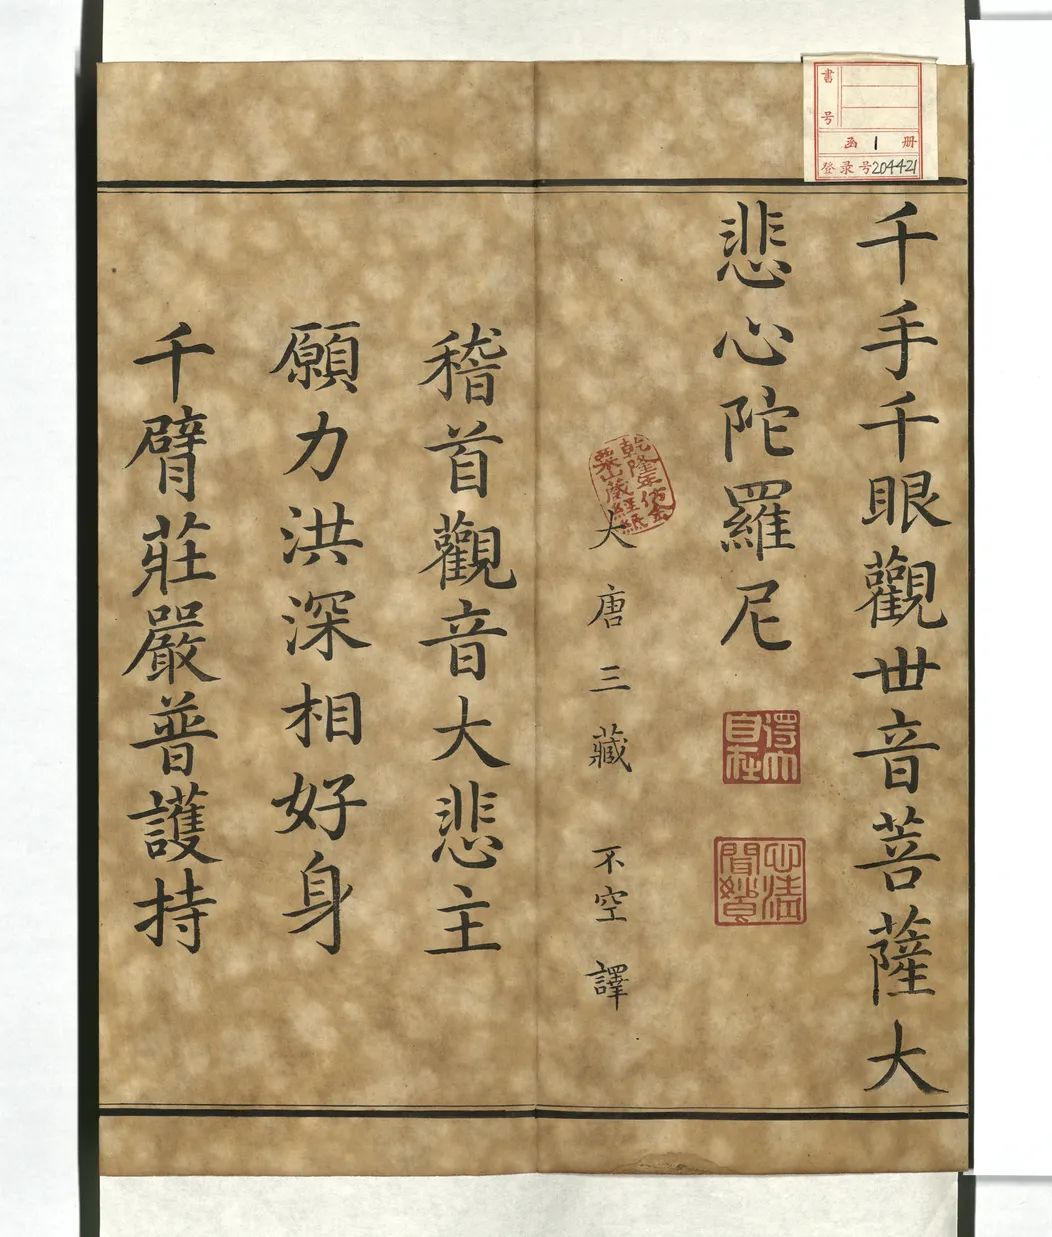 千手千眼觀世音菩薩大
悲心陀羅尼
得大
自在
心清
聞妙香
乾隆年仿金
粟山藏經紙
大唐三藏 不空 譯
稽首觀音大悲主
願力洪深相好身
千臂莊嚴普護持
書号
函 1 册
登录号204421